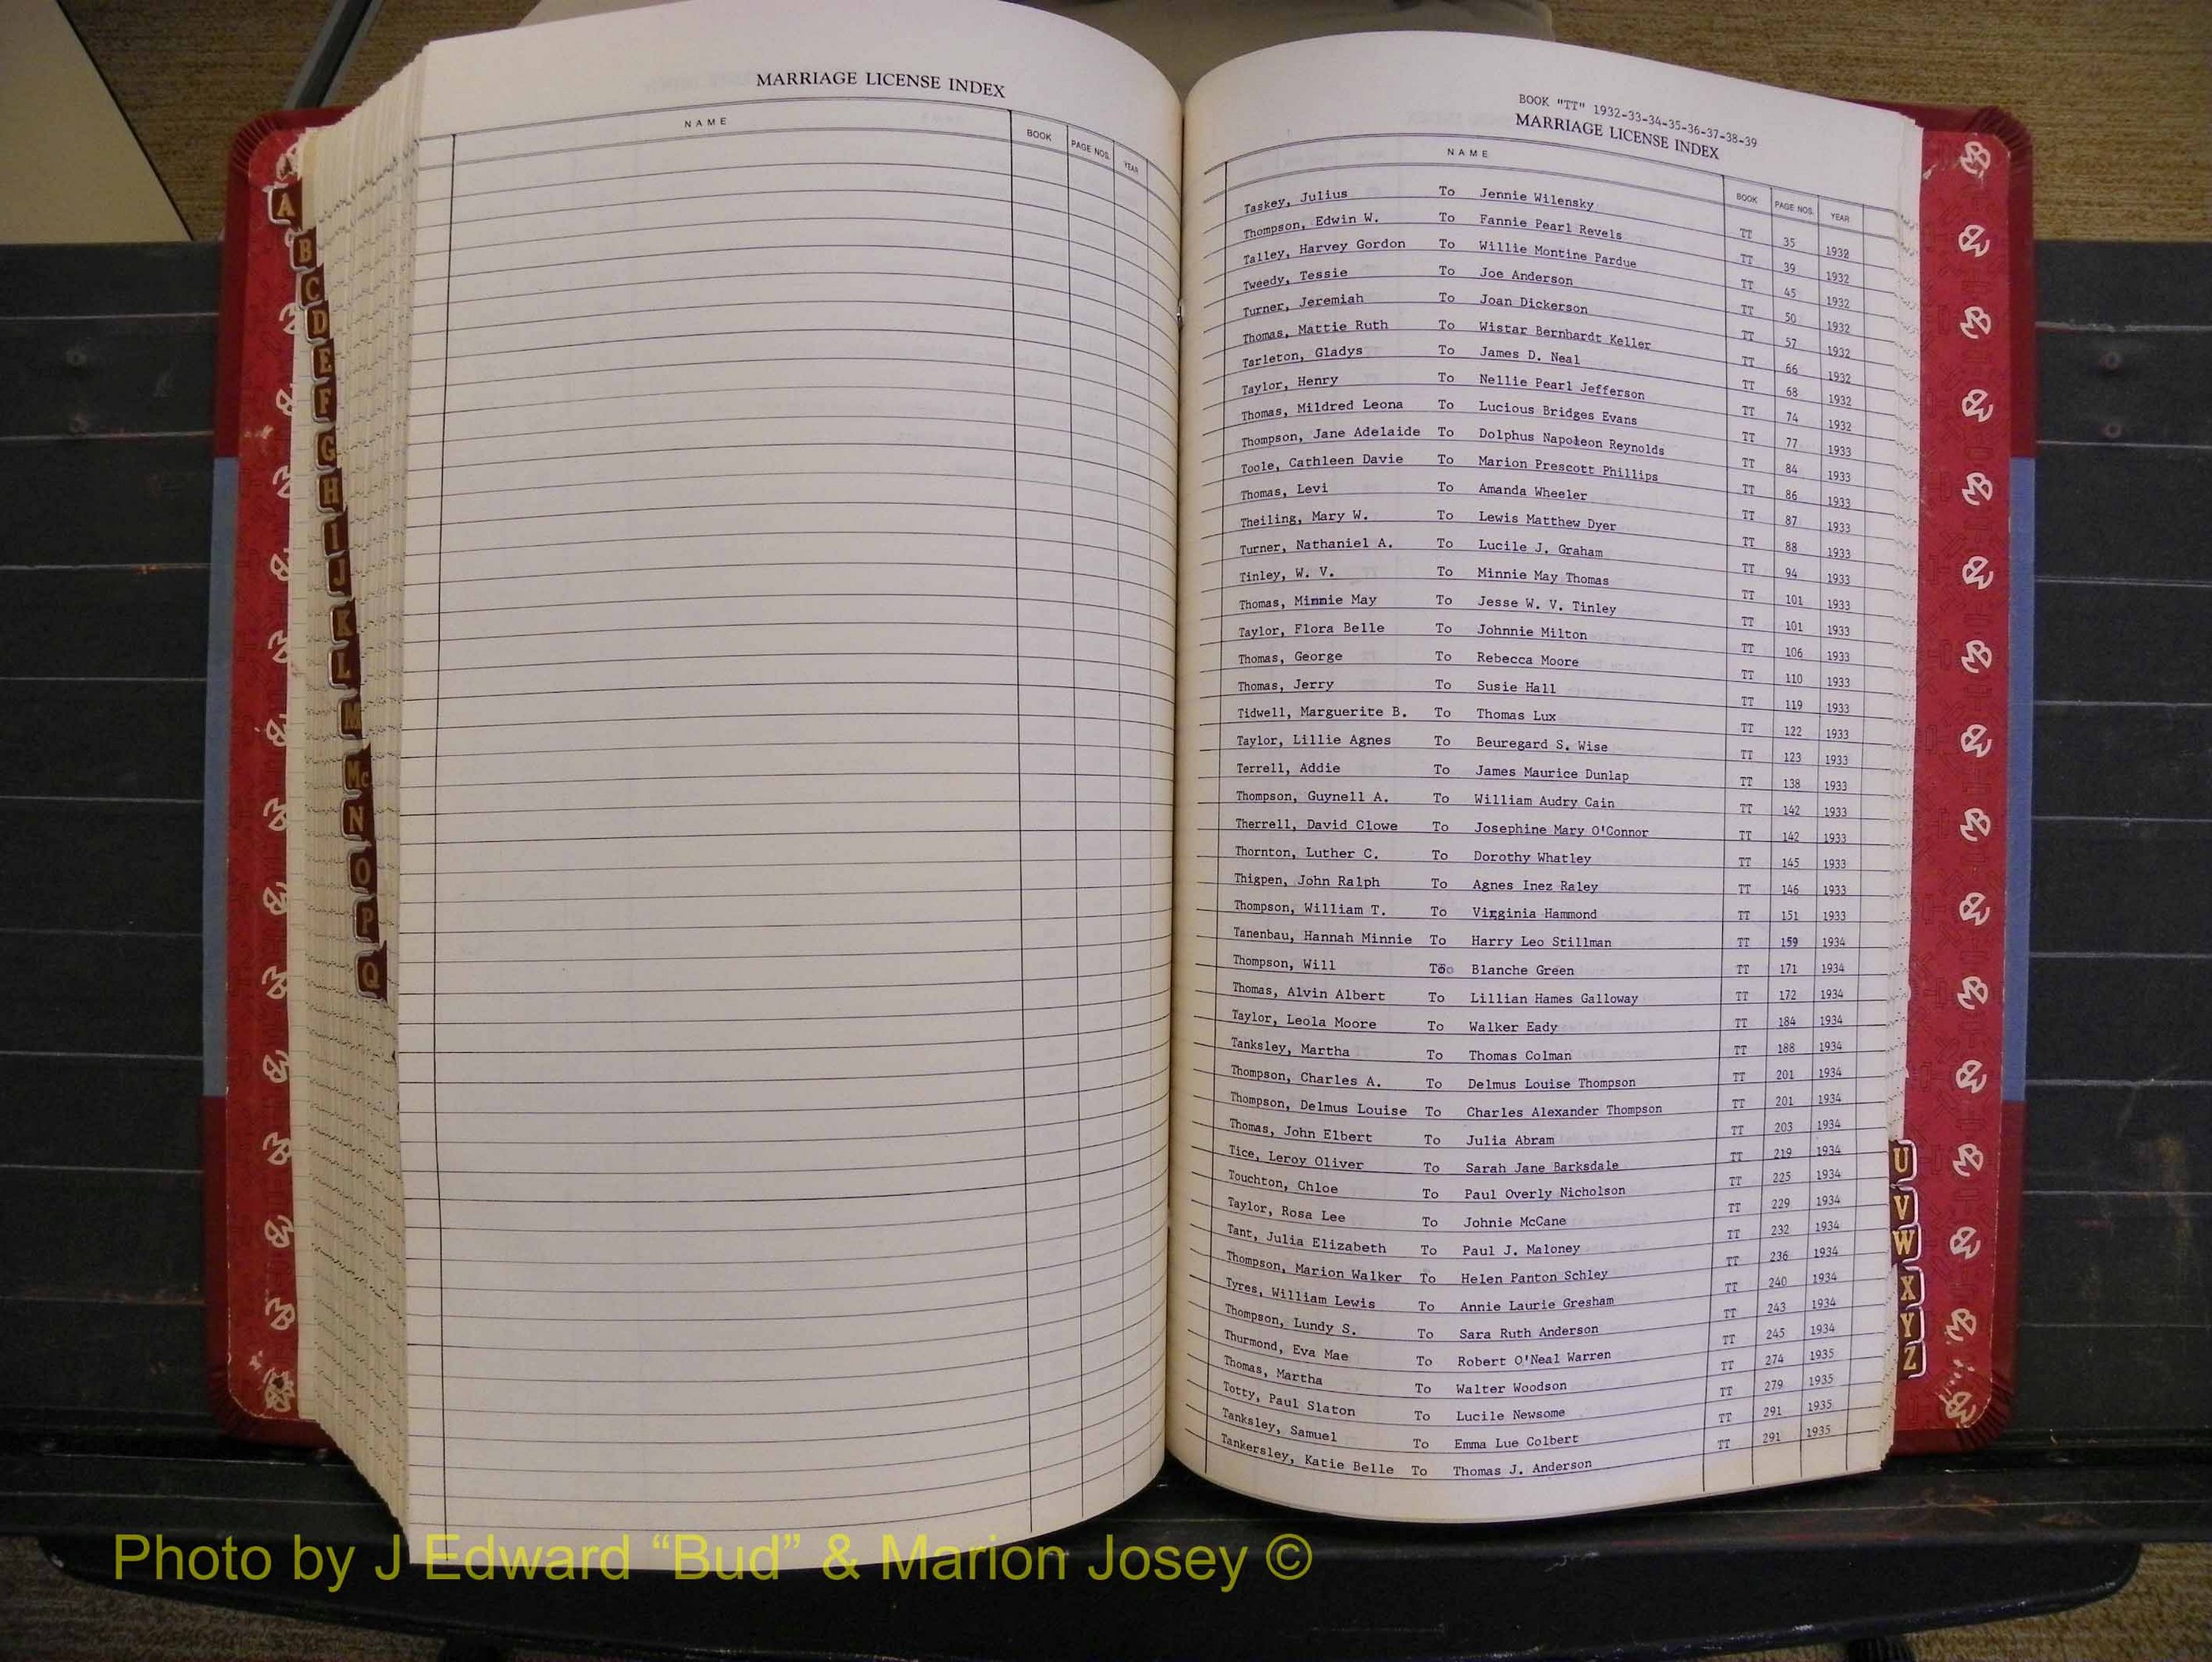 MARRIAGE LICENSE INDEX
NAME BOOK PAGE NOS. YEAR
BOOK "TT" 1932-33-34-35-36-37-38-39
MARRIAGE LICENSE INDEX
NAME BOOK PAGE NOS. YEAR
Taskey, Julius To Jennie Wilensky TT 35 1932
Thompson, Edwin W. To Fannie Pearl Revels TT 39 1932
Talley, Harvey Gordon To Willie Montine Pardue TT 45 1932
Tweedy, Tessie To Joe Anderson TT 50 1932
Turner, Jeremiah To Joan Dickerson TT 57 1932
Thomas, Mattie Ruth To Wistar Bernhardt Keller TT 66 1932
Tarleton, Gladys To James D. Neal TT 68 1932
Taylor, Henry To Nellie Pearl Jefferson TT 74 1932
Thomas, Mildred Leona To Lucious Bridges Evans TT 77 1933
Thompson, Jane Adelaide To Dolphus Napoleon Reynolds TT 84 1933
Toole, Cathleen Davie To Marion Prescott Phillips TT 86 1933
Thomas, Levi To Amanda Wheeler TT 87 1933
Theiling, Mary W. To Lewis Matthew Dyer TT 88 1933
Turner, Nathaniel A. To Lucile J. Graham TT 94 1933
Tinley, W. V. To Minnie May Thomas TT 101 1933
Thomas, Minnie May To Jesse W. V. Tinley TT 101 1933
Taylor, Flora Belle To Johnnie Milton TT 106 1933
Thomas, George To Rebecca Moore TT 110 1933
Thomas, Jerry To Susie Hall TT 119 1933
Tidwell, Marguerite B. To Thomas Lux TT 122 1933
Taylor, Lillie Agnes To Beuregard S. Wise TT 123 1933
Terrell, Addie To James Maurice Dunlap TT 138 1933
Thompson, Guynell A. To William Audry Cain TT 142 1933
Therrell, David Clowe To Josephine Mary O'Connor TT 142 1933
Thornton, Luther C. To Dorothy Whatley TT 145 1933
Thigpen, John Ralph To Agnes Inez Raley TT 146 1933
Thompson, William T. To Virginia Hammond TT 151 1933
Tanenbau, Hannah Minnie To Harry Leo Stillman TT 159 1934
Thompson, Will To Blanche Green TT 171 1934
Thomas, Alvin Albert To Lillian Hames Galloway TT 172 1934
Taylor, Leola Moore To Walker Eady TT 184 1934
Tanksley, Martha To Thomas Colman TT 188 1934
Thompson, Charles A. To Delmus Louise Thompson TT 201 1934
Thompson, Delmus Louise To Charles Alexander Thompson TT 201 1934
Thomas, John Elbert To Julia Abram TT 203 1934
Tice, Leroy Oliver To Sarah Jane Barksdale TT 219 1934
Touchton, Chloe To Paul Overly Nicholson TT 225 1934
Taylor, Rosa Lee To Johnie McCane TT 229 1934
Tant, Julia Elizabeth To Paul J. Maloney TT 232 1934
Thompson, Marion Walker To Helen Panton Schley TT 236 1934
Tyres, William Lewis To Annie Laurie Gresham TT 240 1934
Thompson, Lundy S. To Sara Ruth Anderson TT 243 1934
Thurmond, Eva Mae To Robert O'Neal Warren TT 245 1934
Thomas, Martha To Walter Woodson TT 274 1935
Totty, Paul Slaton To Lucile Newsome TT 279 1935
Tanksley, Samuel To Emma Lue Colbert TT 291 1935
Tankersley, Katie Belle To Thomas J. Anderson TT 291 1935
A
B
C
D
E
F
G
H
I
J
K
L
M
Mc
N
O
P
Q
U
V
W
X
Y
Z
Photo by J Edward “Bud” & Marion Josey ©